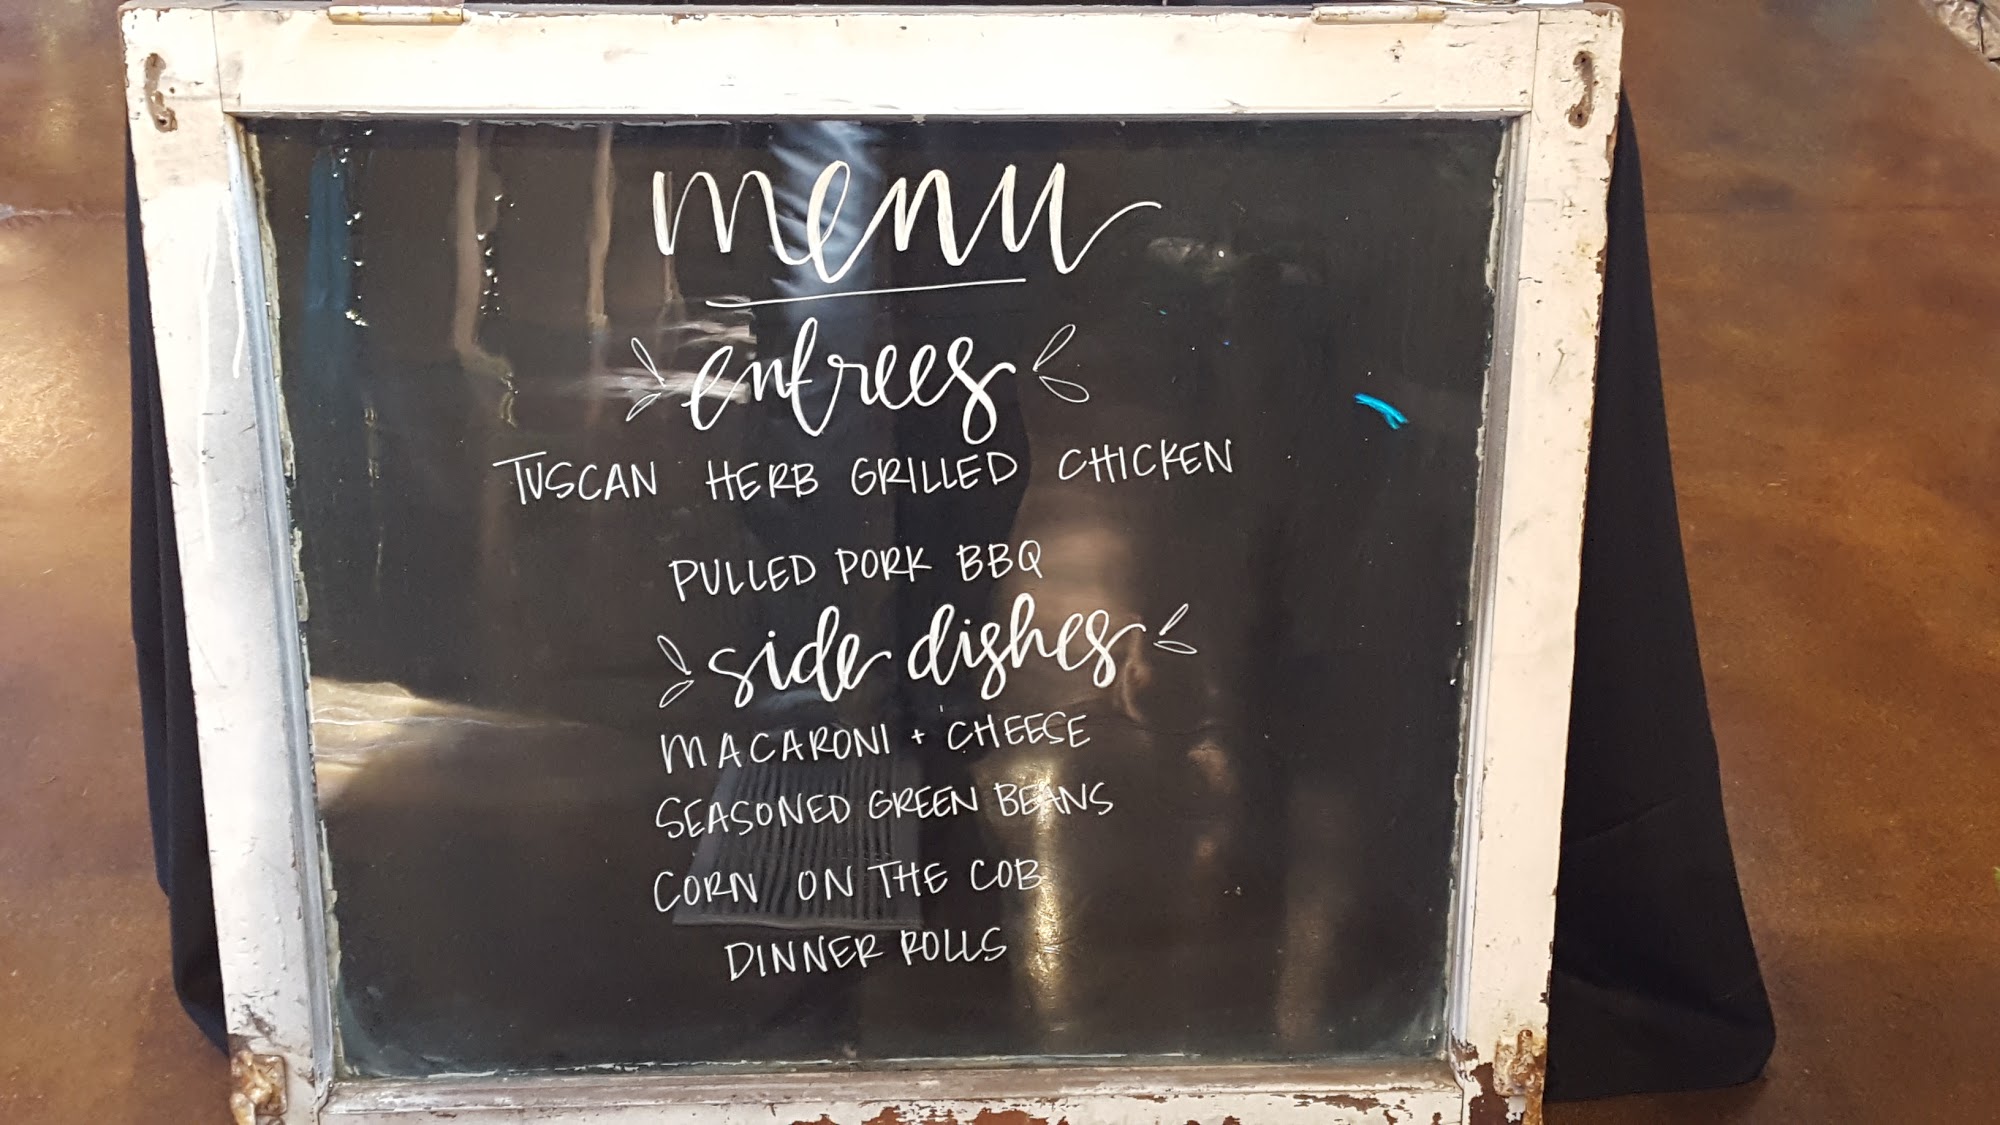 menu
entrees
TUSCAN HERB GRILLED CHICKEN
PULLED PORK BBQ
side dishes
MACARONI + CHEESE
SEASONED GREEN BEANS
CORN ON THE COB
DINNER ROLLS